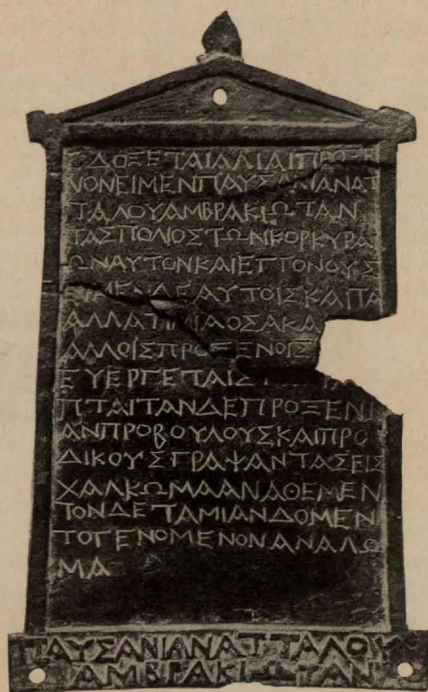 ΕΔΟΞΕΤΑΙΑΛΙΑΙΠΡΟΞΕ
ΝΟΝΕΙΜΕΝΠΑΥΣΑΝΙΑΝΑΤ
ΤΑΛΟΥΑΜΒΡΑΚΙΩΤΑΝ
ΤΑΣΠΟΛΙΟΣΤΩΝΚΟΡΚΥΡΑΙ
ΩΝΑΥΤΟΝΚΑΙΕΓΓΟΝΟΥΣ
ΕΙΜΕΝΔΕΑΥΤΟΙΣΚΑΙΤΑ
ΑΛΛΑΤΙΜΙΑΟΣΑΚΑ
ΑΛΛΟΙΣΠΡΟΞΕΝΟΙΣ
ΕΥΕΡΓΕΤΑΙΣ
ΠΤΑΙΤΑΝΔΕΠΡΟΞΕΝΙ
ΑΝΠΡΟΒΟΥΛΟΥΣΚΑΙΠΡΟ
ΔΙΚΟΥΣΓΡΑΨΑΝΤΑΣΕΙΣ
ΧΑΛΚΩΜΑΑΝΑΘΕΜΕΝ
ΤΟΝΔΕΤΑΜΙΑΝΔΟΜΕΝ
ΤΟΓΕΝΟΜΕΝΟΝΑΝΑΛΩ
ΜΑ
ΠΑΥΣΑΝΙΑΝΑΤΤΑΛΟΥ
ΑΜΒΡΑΚΙΩΤΑΝ